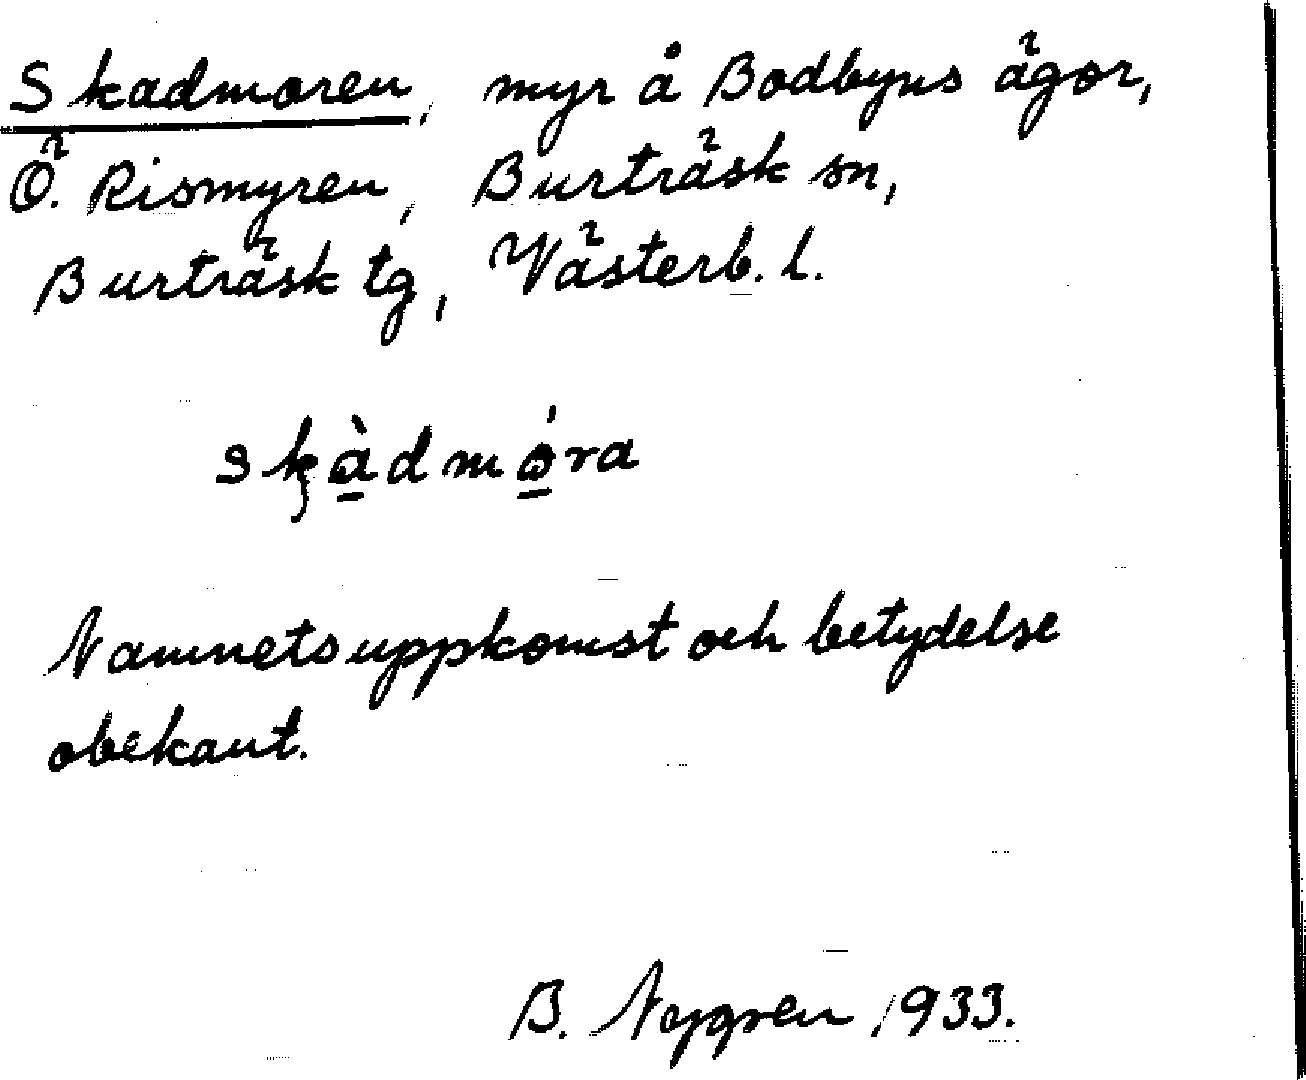 Skadmoren, myr å Bodbyns ägor,
Ö. Rismyren, Burträsk sn,
Burträsk tg, Västerb. l.
skàdmóra
Namnets uppkomst och betydelse
obekant.
B. Nygren 1933.